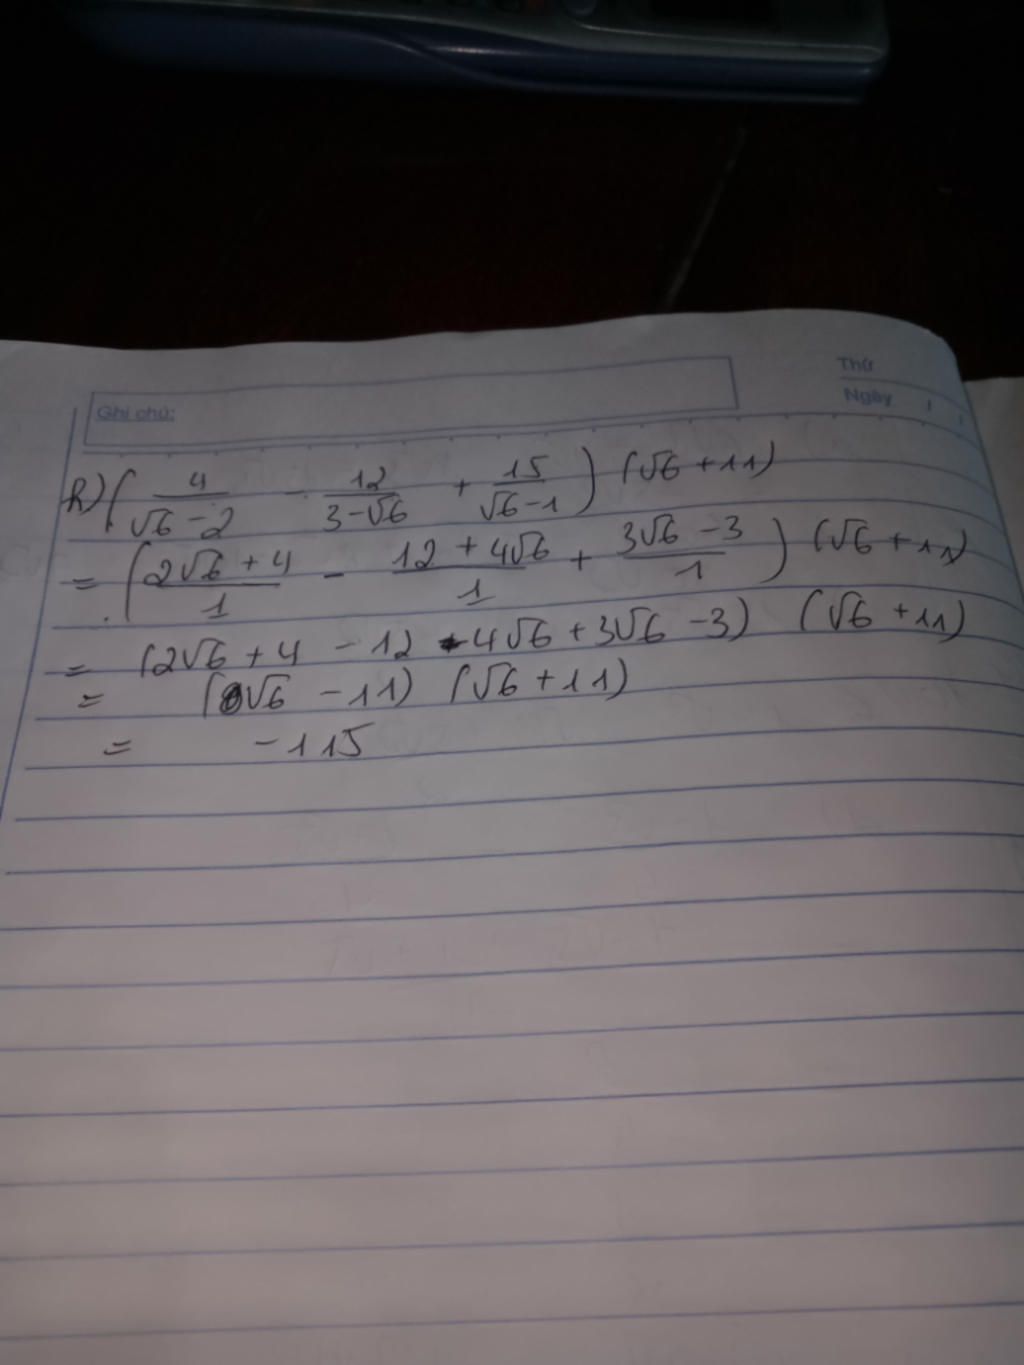 Thứ
Ngày / /
Ghi chú:
h) (4/(√6 - 2) - 12/(3 - √6) + 15/(√6 - 1)) (√6 + 11)
= ((2√6 + 4)/1 - (12 + 4√6)/1 + (3√6 - 3)/1) (√6 + 11)
= (2√6 + 4 - 12 - 4√6 + 3√6 - 3) (√6 + 11)
= (√6 - 11) (√6 + 11)
= -115